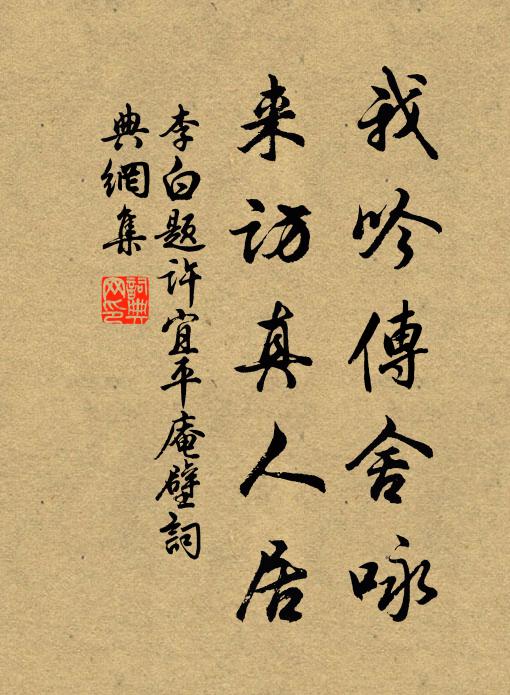 我吟傳舍咏
来訪真人居
李白题許宣平庵壁詞
典網集
詞典網印